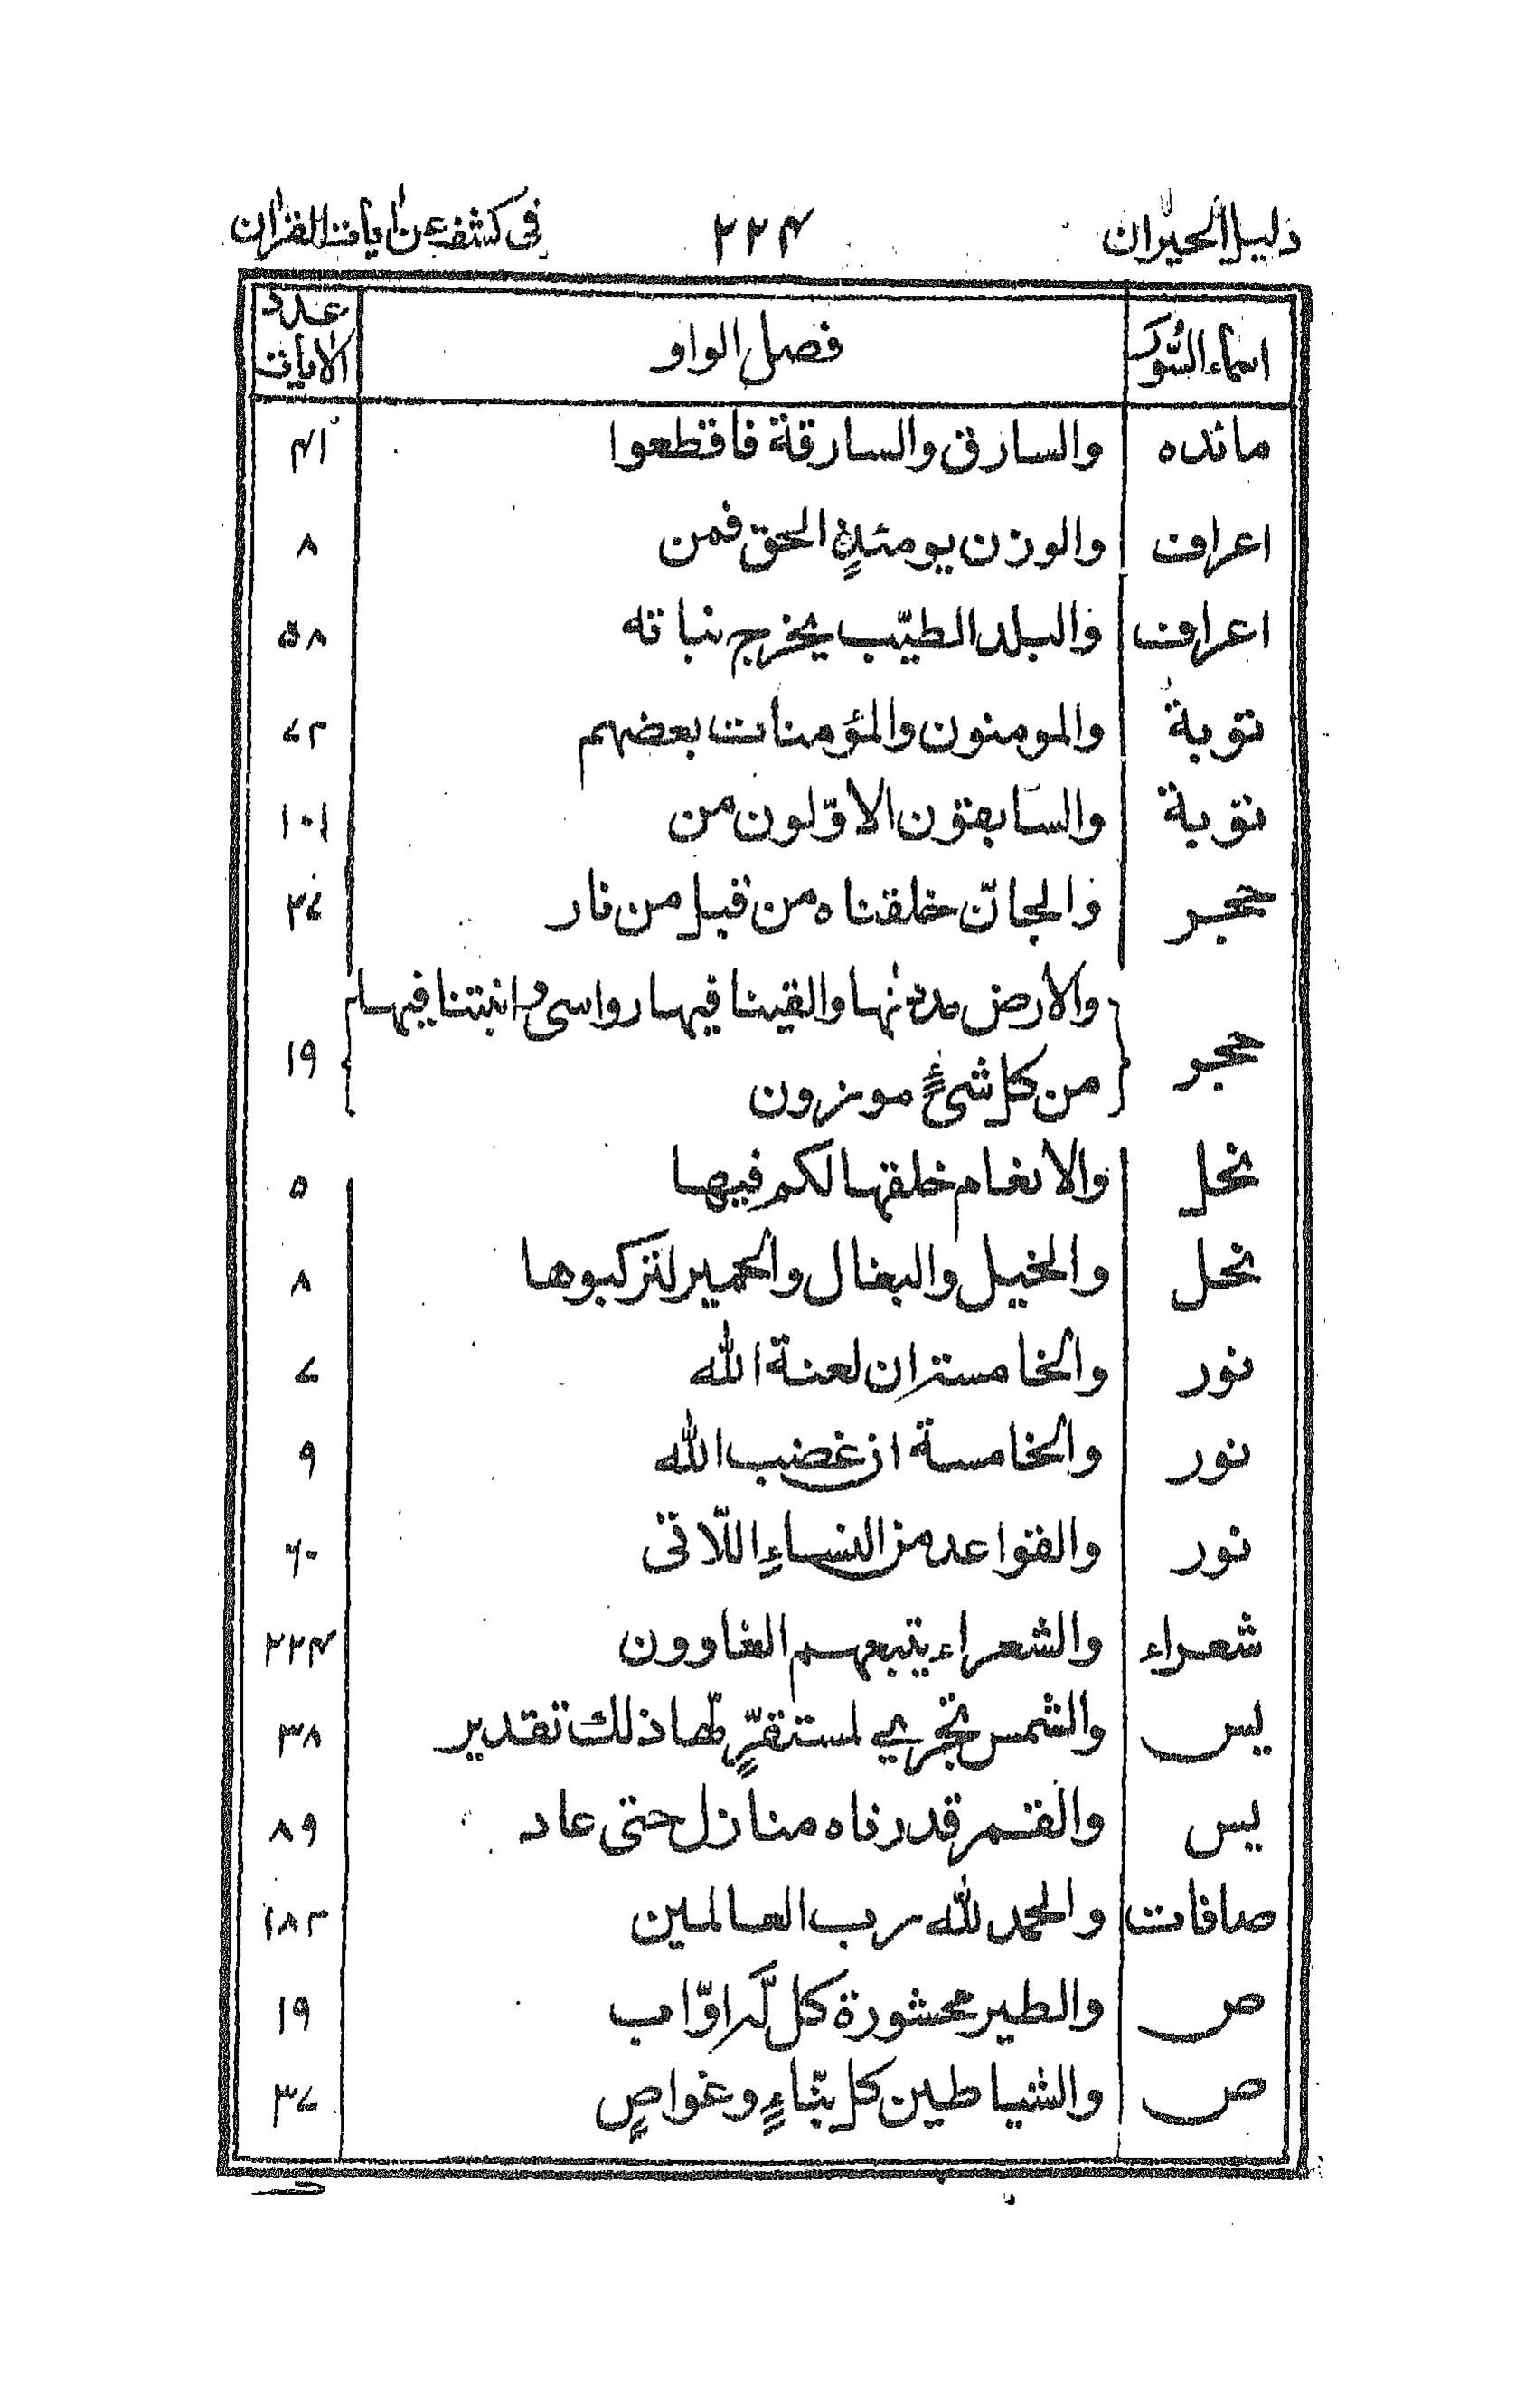 دليل الحيران ۲۲۴ فى كشف عن ايات القران
اسماء السُّور فصل الواو عدد الاٰيات
مائده والسارق والسارقة فاقطعوا ۴۱
اعراف والوزن يومئذٍ الحق فمن ۸
اعراف والبلد الطيّب يخرج نباته ۵۸
توبة والمومنون والمؤمنات بعضهم ۷۲
توبة والسابقون الاوّلون من ۱۰۱
حجر والجانّ خلقناه من قبل من نار ۲۷
حجر والارض مددنٰها والقينا فيها رواسى وانبتنا فيها
من كل شئٍ موزون ۱۹
نحل والانعام خلقها لكم فيها ۵
نحل والخيل والبغال والحمير لتركبوها ۸
نور والخامسة ان لعنة الله ۷
نور والخامسة ان غضب الله ۹
نور والقواعد من النساءِ اللّاتى ۶۰
شعراء والشعراء يتبعهم الغاوون ۲۲۴
يس والشمس تجرى لمستقرٍّ لها ذلك تقدير ۳۸
يس والقمر قدرناه منازل حتى عاد ۸۹
صافات والحمد لله رب العالمين ۱۸۲
ص والطير محشورة كل لّه اوّاب ۱۹
ص والشياطين كل بنّاءٍ وغواصٍ ۳۷